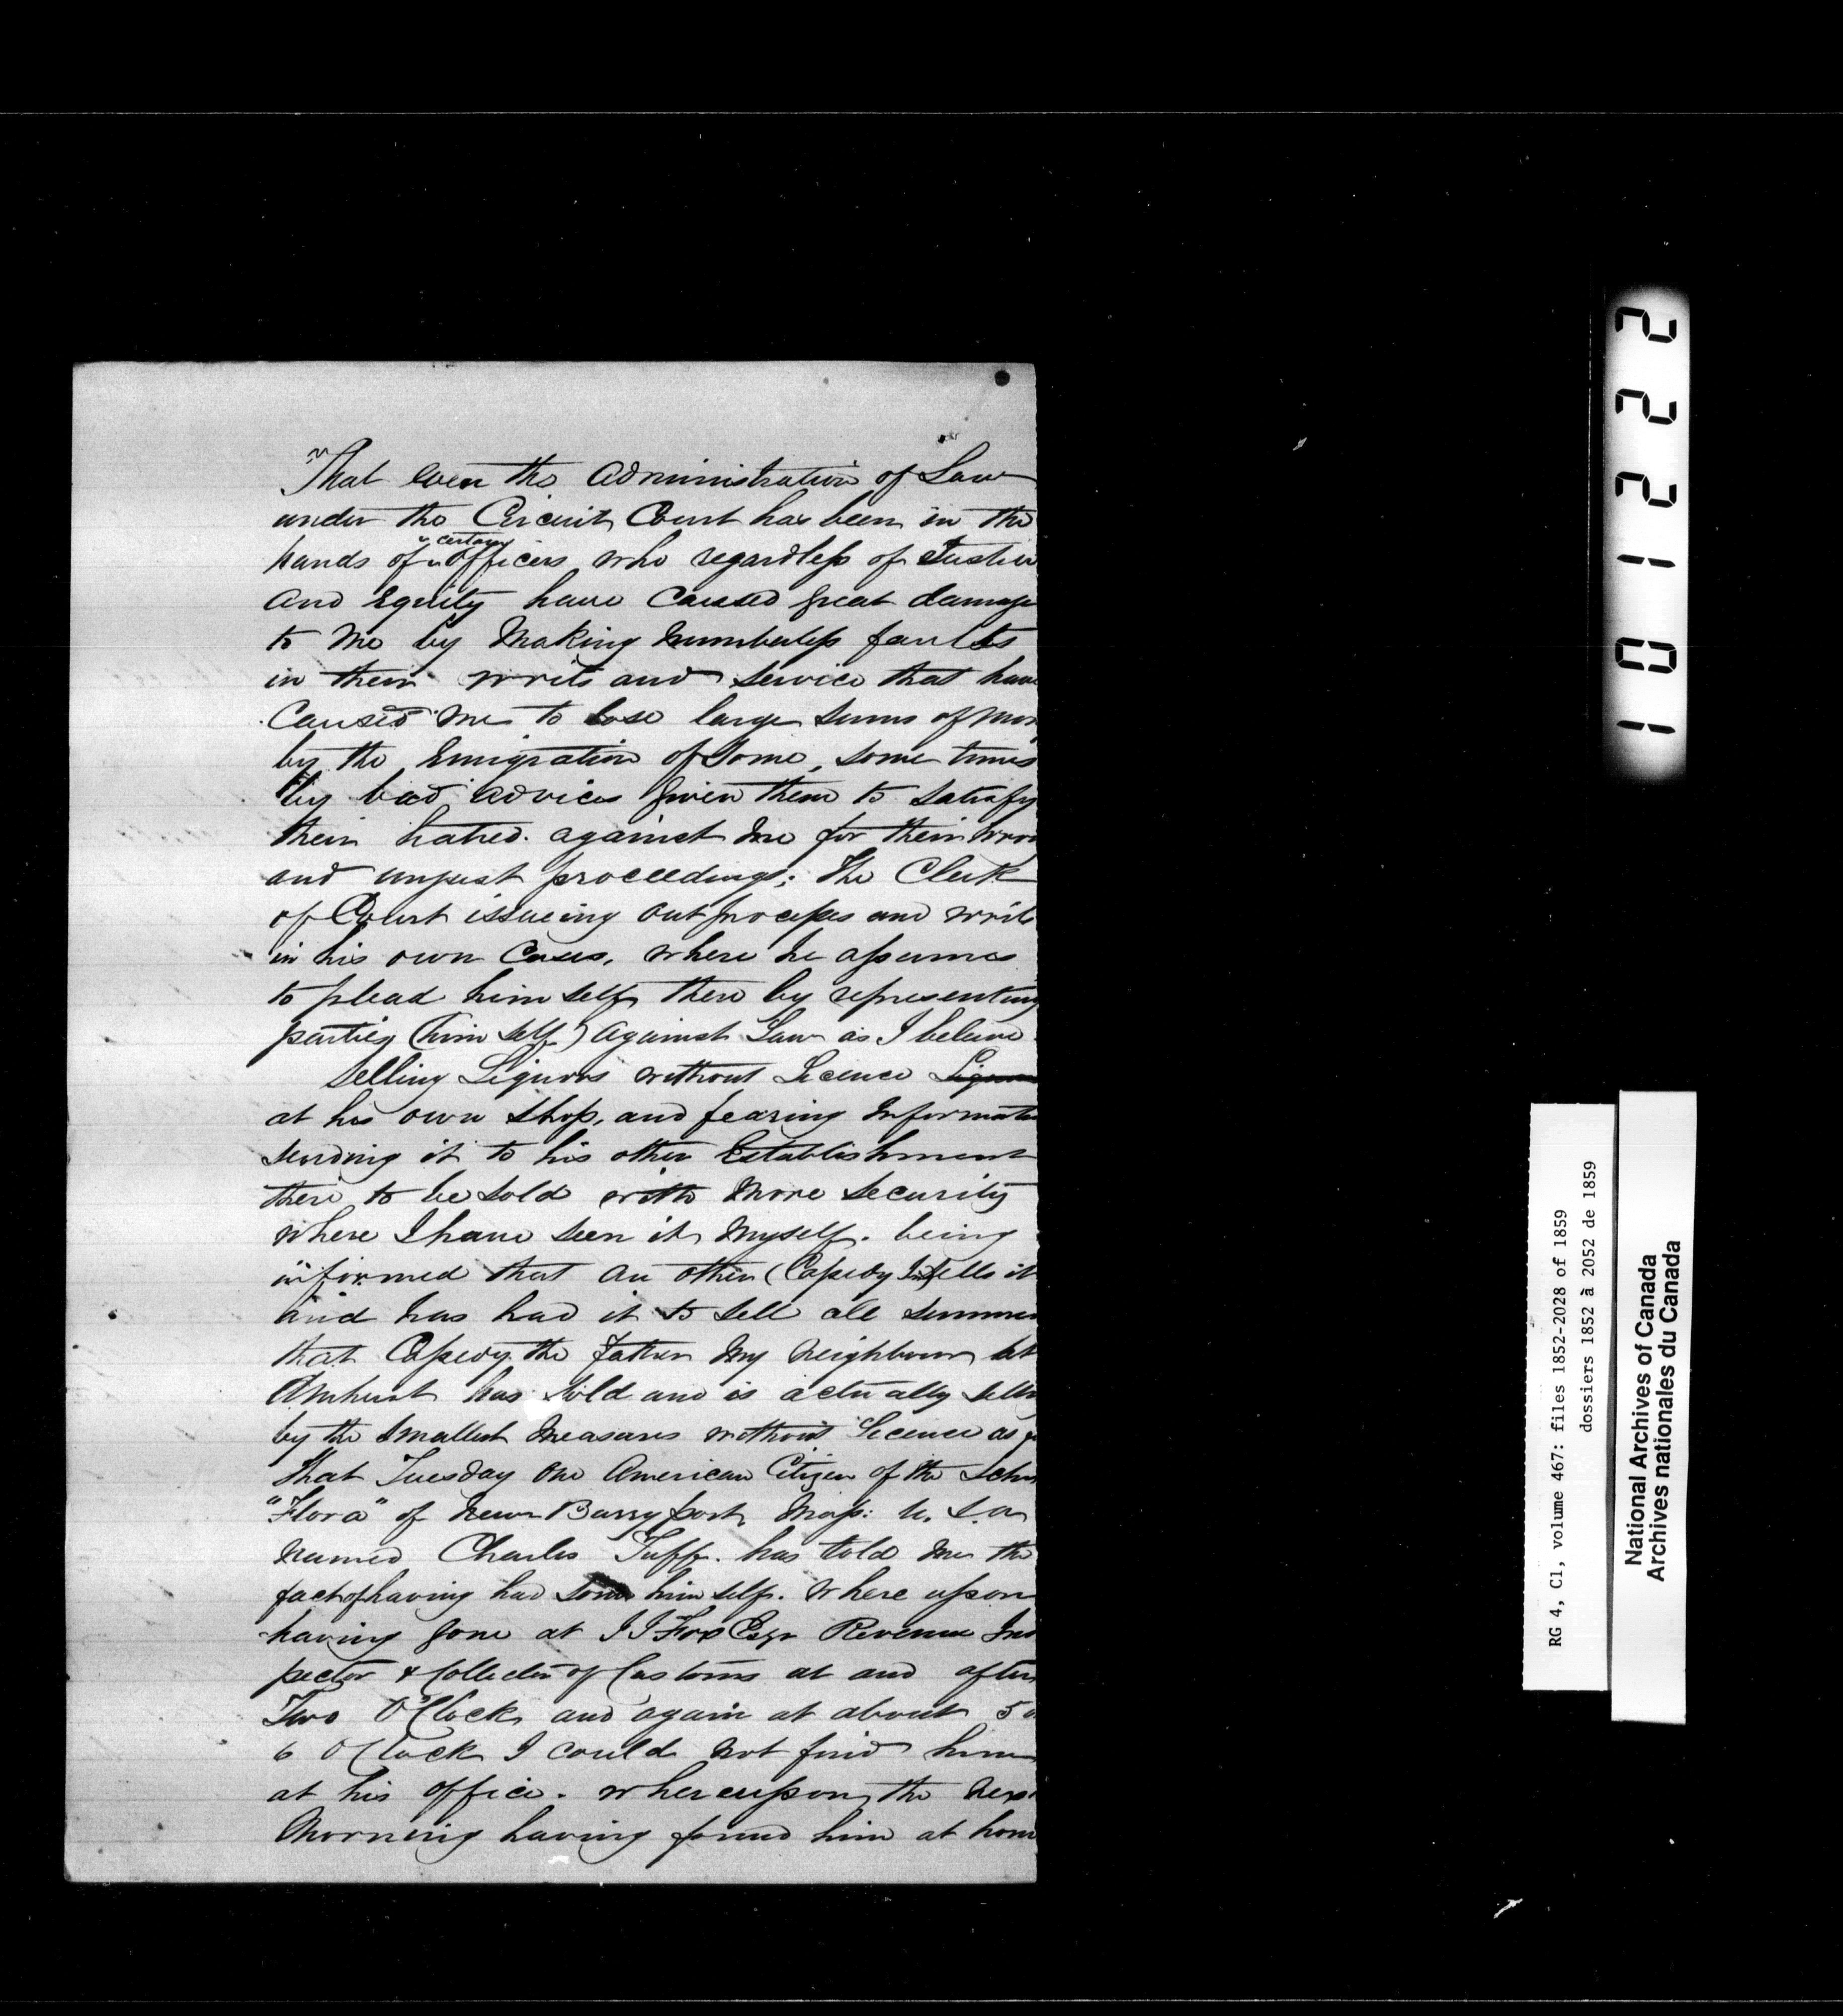 That even the Administration of Law
under the Circuit Court has been in the
certain
hands of officers who regardless of Justice
and Equity have caused great damage
to me by making numberless faults
in their writs and service that have
caused me to lose large sums of mon
by the Emigration of some, some times
by bad advices given them to satisfy
their hatred against me for their wron
and unjust proceedings; the Clerk
of Court issueing out processes and writs
in his own Cases, where he assumes
to plead him self, there by representing
parties (him self) against Law as I believe
selling Liquors without Licence
at his own shop, and fearing Informatio
sending it to his other Establishment
there to be sold with more security
where I have seen it myself. being
informed that an other (Cassidy Jr) sells it
and has had it to sell all summer
that Cassidy the father my neighbour at
Amherst has sold and is actually sellin
by the smallest measures without Licence as
that Tuesday one American Citizen of the Schr
"Flora" of New Burry port, Mass: U. S. A
named Charles Tuff. has told me the
fact of having had some him self. where upon
having gone at J J Fox Esqr Revenue Ins
pector & Collector of Customs at and after
Two O'Clock and again at about 5 o
6 O Clock I could not find him
at his office. whereupon the next
Morning having found him at home
1 0 1 2 2 2
RG 4, C1, volume 467: files 1852-2028 of 1859
dossiers 1852 à 2052 de 1859
National Archives of Canada
Archives nationales du Canada